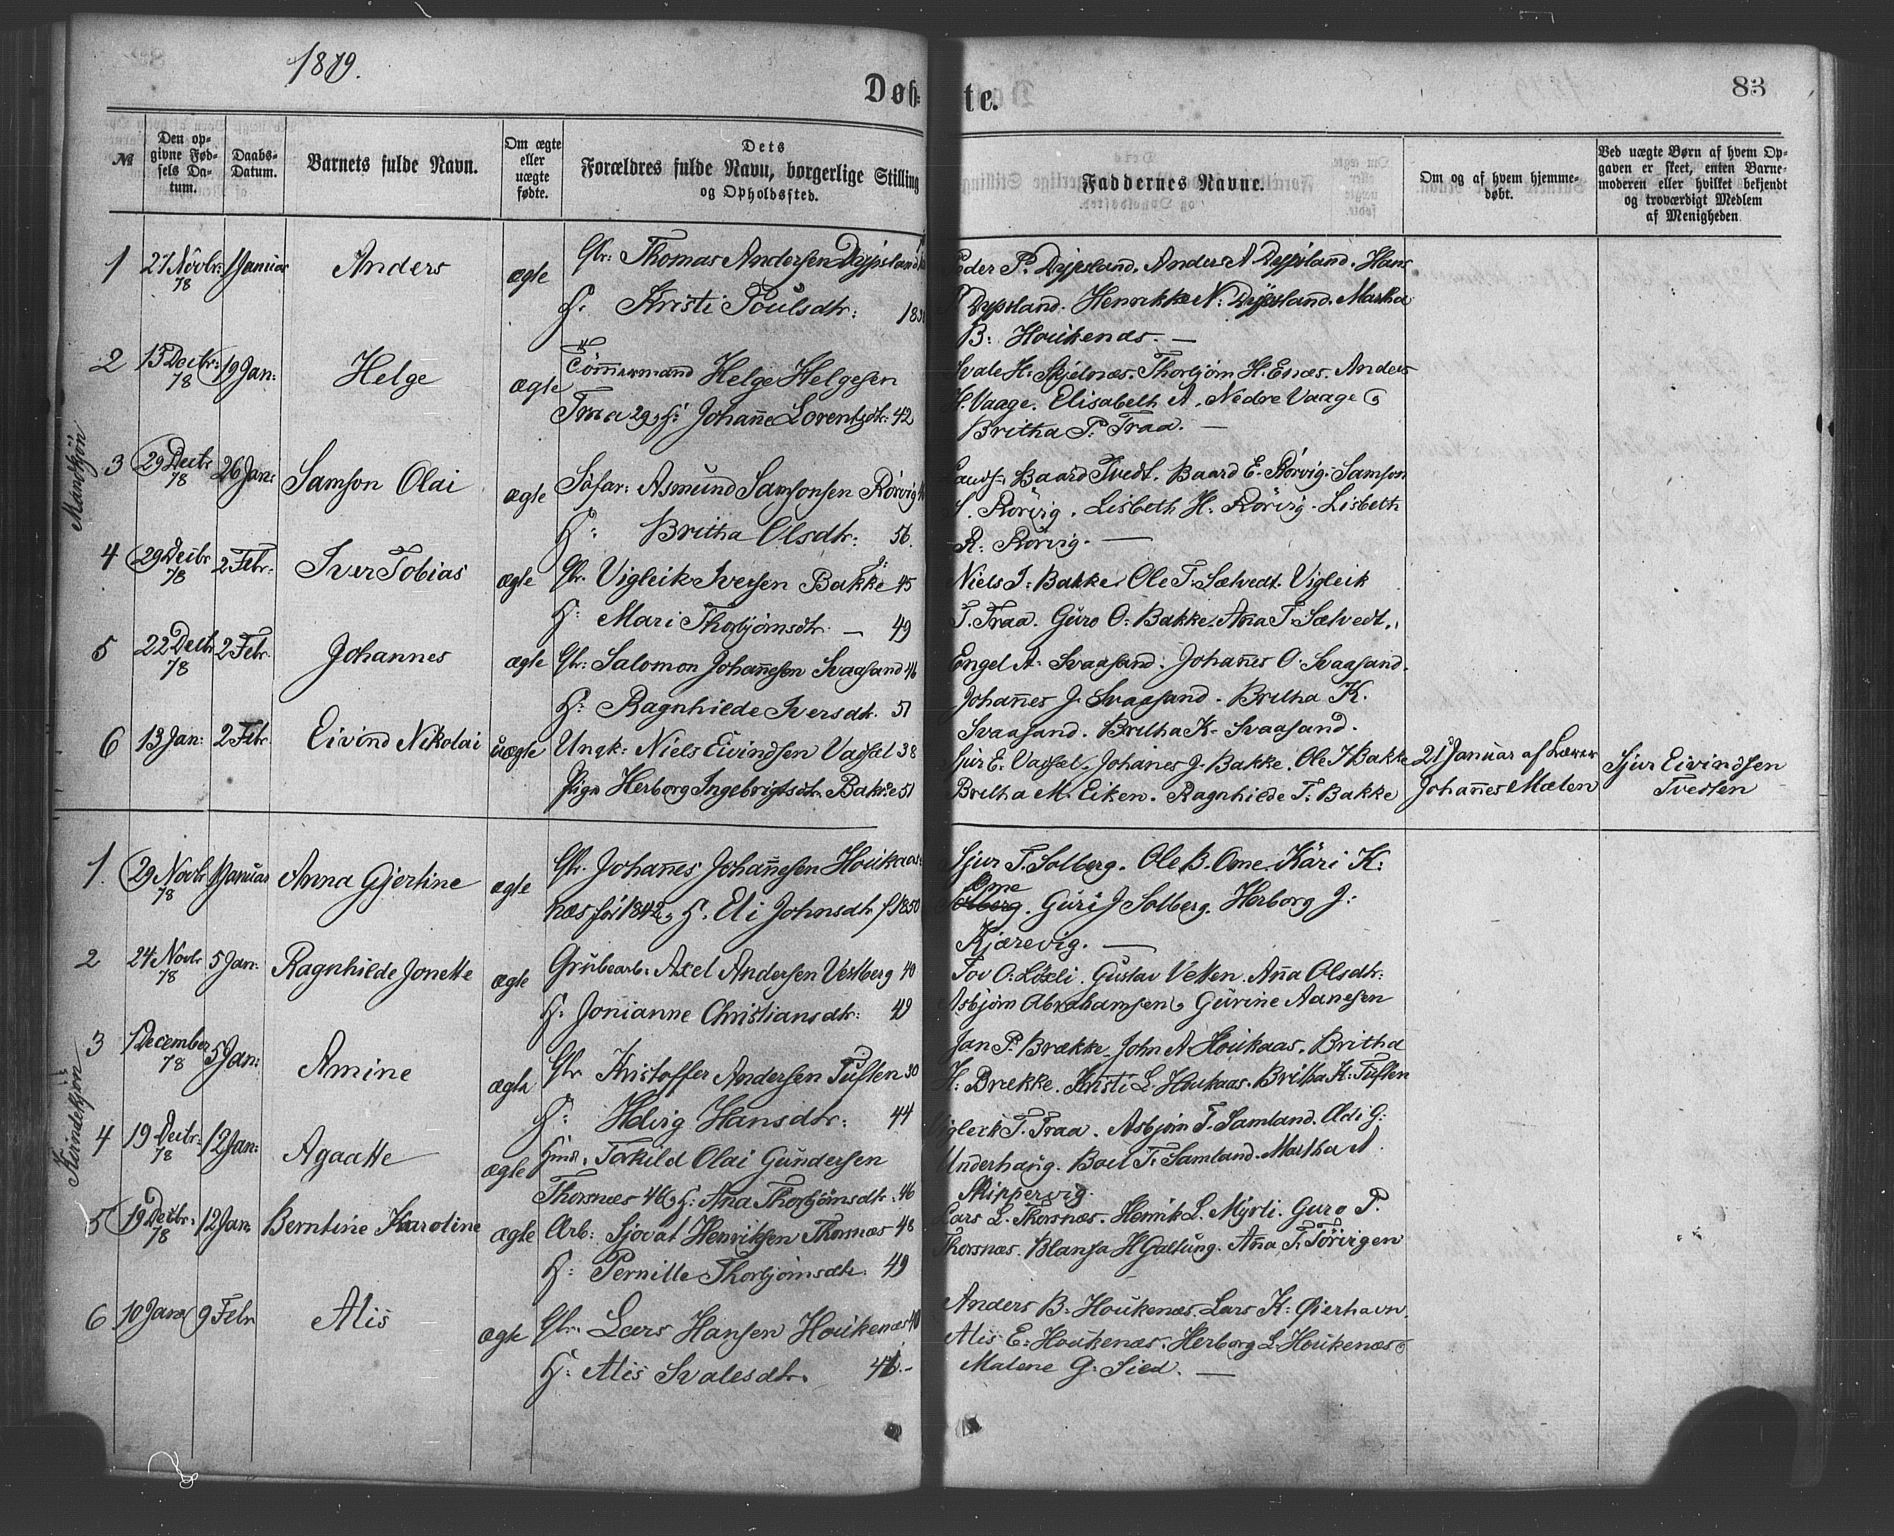 1879.
Døb-
te.
83
№
Den op-
givne Fød-
sels Da-
tum.
Daabs-
Datum.
Barnets fulde Navn.
Om ægte
eller
uægte
fødte.
Dets
Forældres fulde Navn, borgerlige Stilling
og Opholdssted.
Faddernes Navne.
Om og af hvem hjemme-
døbt.
Ved uægte Børn af hvem Op-
gaven er skeet, enten Barne-
moderen eller hvilket bekjendt
og troværdigt Medlem
af Menigheden.
Mandkjøn
1 27 Novbr: 78 1 Januar Anders ægte Gbr: Thomas Andersen Dypsland
H: Kristi Poulsdtr:
Peder P. Dypsland. Anders A Dypsland. Hans
P. Dypsland. Henrikke N: Dypsland. Martha
B: Houkenæs. —
2 13 Decbr: 78 19 Jan: Helge ægte Tömmermand Helge Helgesen
Traa 29, H: Johanne Lorentsdtr: 42
Svale H: Skjelnæs. Thorbjørn H. Enæs. Anders
H. Vaage. Elisabeth A. Nedre Vaage &
Britha P: Traa. —
3 29 Decbr 78 26 Jan: Samson Olai ægte Asmund Samsonsen Rörvig
H: Britha Olsdtr: 56.
Baard Tvedt. Baard E. Rörvig. Samson
S. Rörvig. Lisbeth H: Rörvig. Lisbeth
R: Rörvig. —
4 29 Decbr 78 2 Febr: Iver Tobias ægte Gbr. Vigleik Iversen Bakke 45
H: Mari Thorbjörnsdtr. — 49
Niels I: Bakke. Ole T. Sælvedt. Vigleik
T. Traa. Guro O: Bakke. Anna T. Sælvedt.
5 22 Decbr 78 2 Febr. Johannes ægte Gbr: Salomon Johannesen Svaasand 46
H: Ragnhilde Iversdtr. 51
Engel A. Svaasand. Johannes O. Svaasand.
Johannes J. Svaasand. Britha K.
Svaasand. Britha K. Svaasand.
6 13 Jan: 2 Febr. Eivind Nikolai uægte Ungk: Niels Eivindsen Vassel 38
Pige Herborg Ingebrigtsdtr. Bakke 51
Sjur E. Vassel. Johanes J. Bakke. Ole I Bakke
Britha M. Eiken. Ragnhilde T: Bakke
21 Januar af Lærer
Johannes Mælen
Sjur Eivindsen
Tvedten
Kvindekjøn
1. 29 Novbr 78 1 Januar Anna Gjertine ægte Gbr. Johannes Johannesen Houkaas-
næs 1842, H. Eli Johnsdtr f 1850
Sjur T. Solberg. Ole B. Ome. Kari K:
Ome
Solberg. Guri J Solberg. Herborg J:
Kjærevig. —
2 24 Novbr 78 5 Jan: Ragnhilde Jonette ægte Grubearb: Axel Andersen Vestberg 40
H. Jonianne Christiansdtr: 49
Tov O. Gustav Vetten. Anna Olsdtr:
Asbjørn Abrahamsen & Gurine Aanesen
3 1 December 78 5 Jan: Amine ægte Gbr. Kristoffer Andersen Tuften 30
H: Helvig Hansdtr: 44
Jan P. Brække. John A Houkaas. Britha
H: Brække. Kristi L. Houkaas. Britha K. Tuften
4 19 Decbr: 78 12 Jan: Agaatte ægte Torkild Olai Gundersen
Thorsnæs 46, H: Ana Thorbjörnsdtr. 46
Vigleik T. Traa. Asbjørn T. Samland. G:
Underhaug. Boel T. Samland. Martha A.
Skippervig.
5 19 Decbr: 78 12 Jan Berntine Karoline ægte Arb: Sjovat Henriksen Thorsnæs 48
H: Pernille Thorbjörnsdtr. 49
Lars L. Thorsnæs. Henrik L. Myrli. Guro P.
Thorsnæs. Blansa H Galtung. Ana T. Törvigen
6 10 Janr 9 Febr Alis ægte Gbr. Lars Hansen Houkenæs 40
H: Alis Svalesdtr.
Anders B. Houkenæs. Lars K: Øierhavn.
Alis E: Houkenæs. Herborg L. Houkenæs &
Malene G. Sied. —